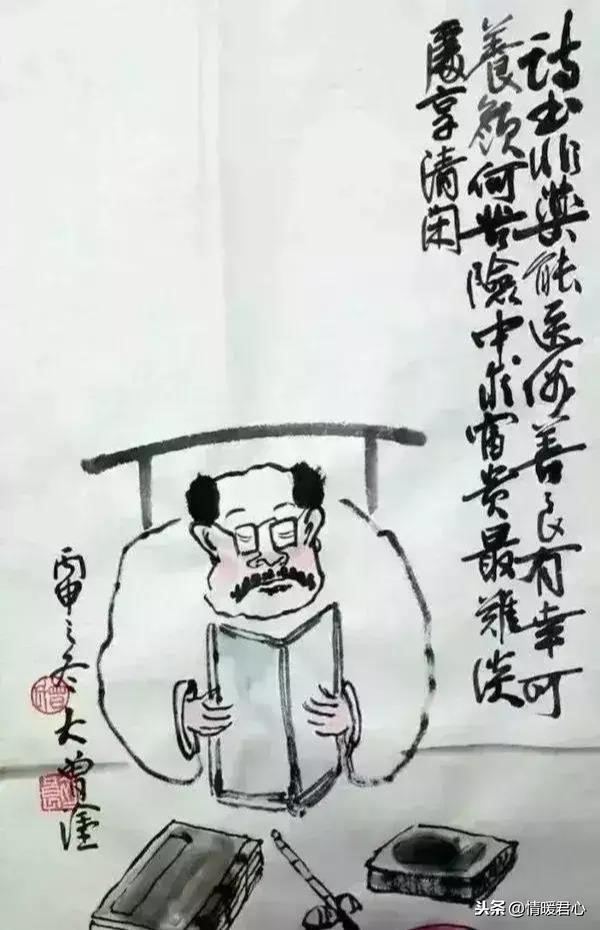 诗书非药能医俗善良有幸可
養顏何苦險中求富贵最難淡
處享清闲
丙申之冬大曾
头条@情暖君心